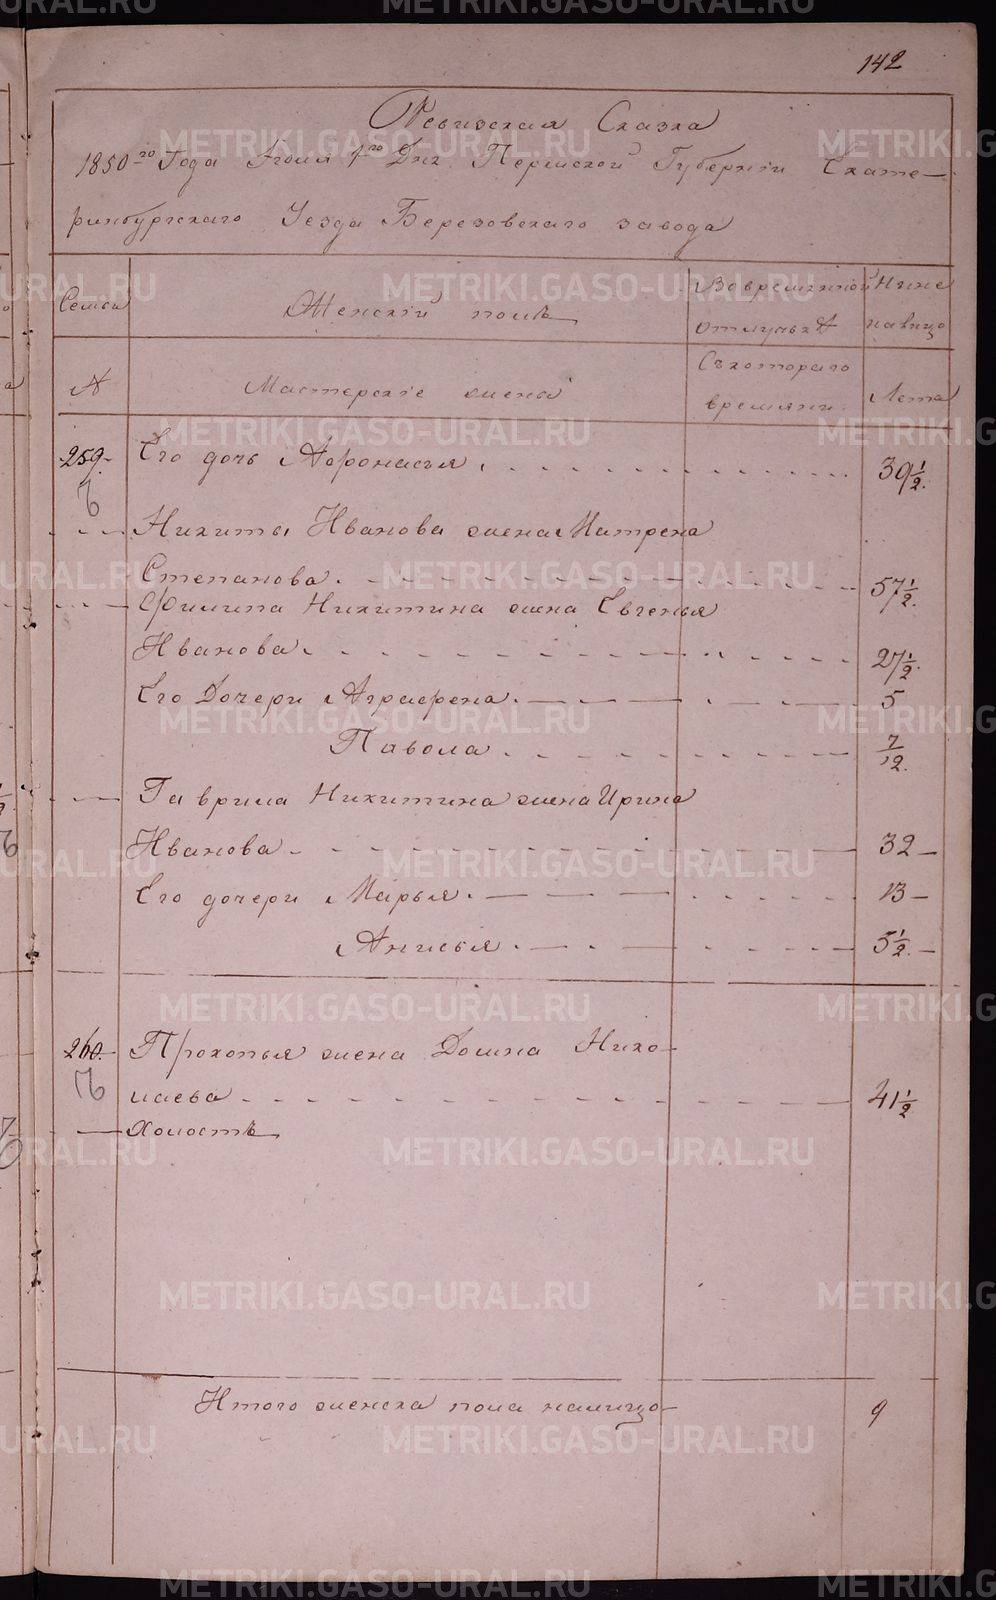 142
Ревизская Сказка
1850го Года Июля 1го Дня Пермской Губернiи Екате-
ринбургскаго Уезда Березовскаго завода
Семьи
Женскiй полъ
Во временной
отлучке
Ныне
налицо
№
Мастерскiе жены
Съ котораго
времяни
Лета
259. Его дочь Афронасья 39 1/2.
Никиты Иванова жена Матрена
Степанова. 57 1/2.
Филипа Никитина жена Евгенья
Иванова. 27 1/2.
Его Дочери Аграфена. 5
Павола. 7/12.
Гаврила Никитина жена Ирина
Иванова 32
Его дочери Марья. 13
Анисья. 5 1/2.
260. Прокопья жена Домна Нико-
лаева 41 1/2
Холостъ
Итого женска пола налицо 9
METRIKI.GASO-URAL.RU